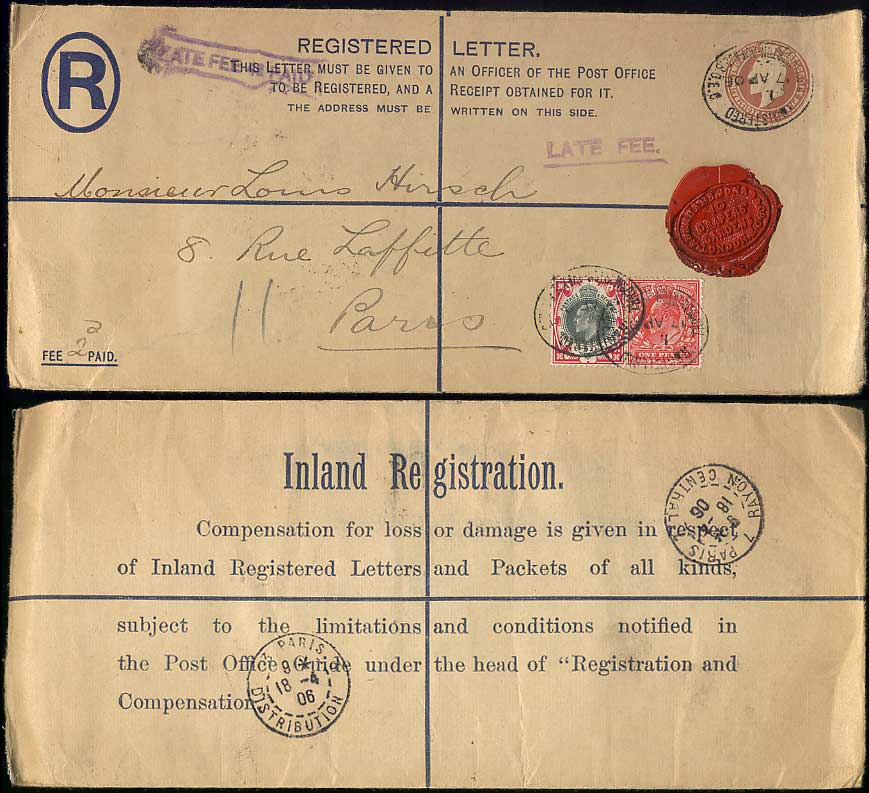 R
REGISTERED LETTER.
THIS LETTER MUST BE GIVEN TO AN OFFICER OF THE POST OFFICE
TO BE REGISTERED, AND A RECEIPT OBTAINED FOR IT.
THE ADDRESS MUST BE WRITTEN ON THIS SIDE.
LATE FEE PAID
LATE FEE.
17 AP 06
Monsieur Louis Hirsch
8. Rue Laffitte
11 Paris
ONE PENNY
17 AP
3
FEE 2 PAID.
Inland Registration.
Compensation for loss or damage is given in respect
of Inland Registered Letters and Packets of all kinds,
subject to the limitations and conditions notified in
the Post Office Guide under the head of "Registration and
Compensation
PARIS
RAYON CENTRAL
18
06
PARIS
9
18 -4
06
DISTRIBUTION